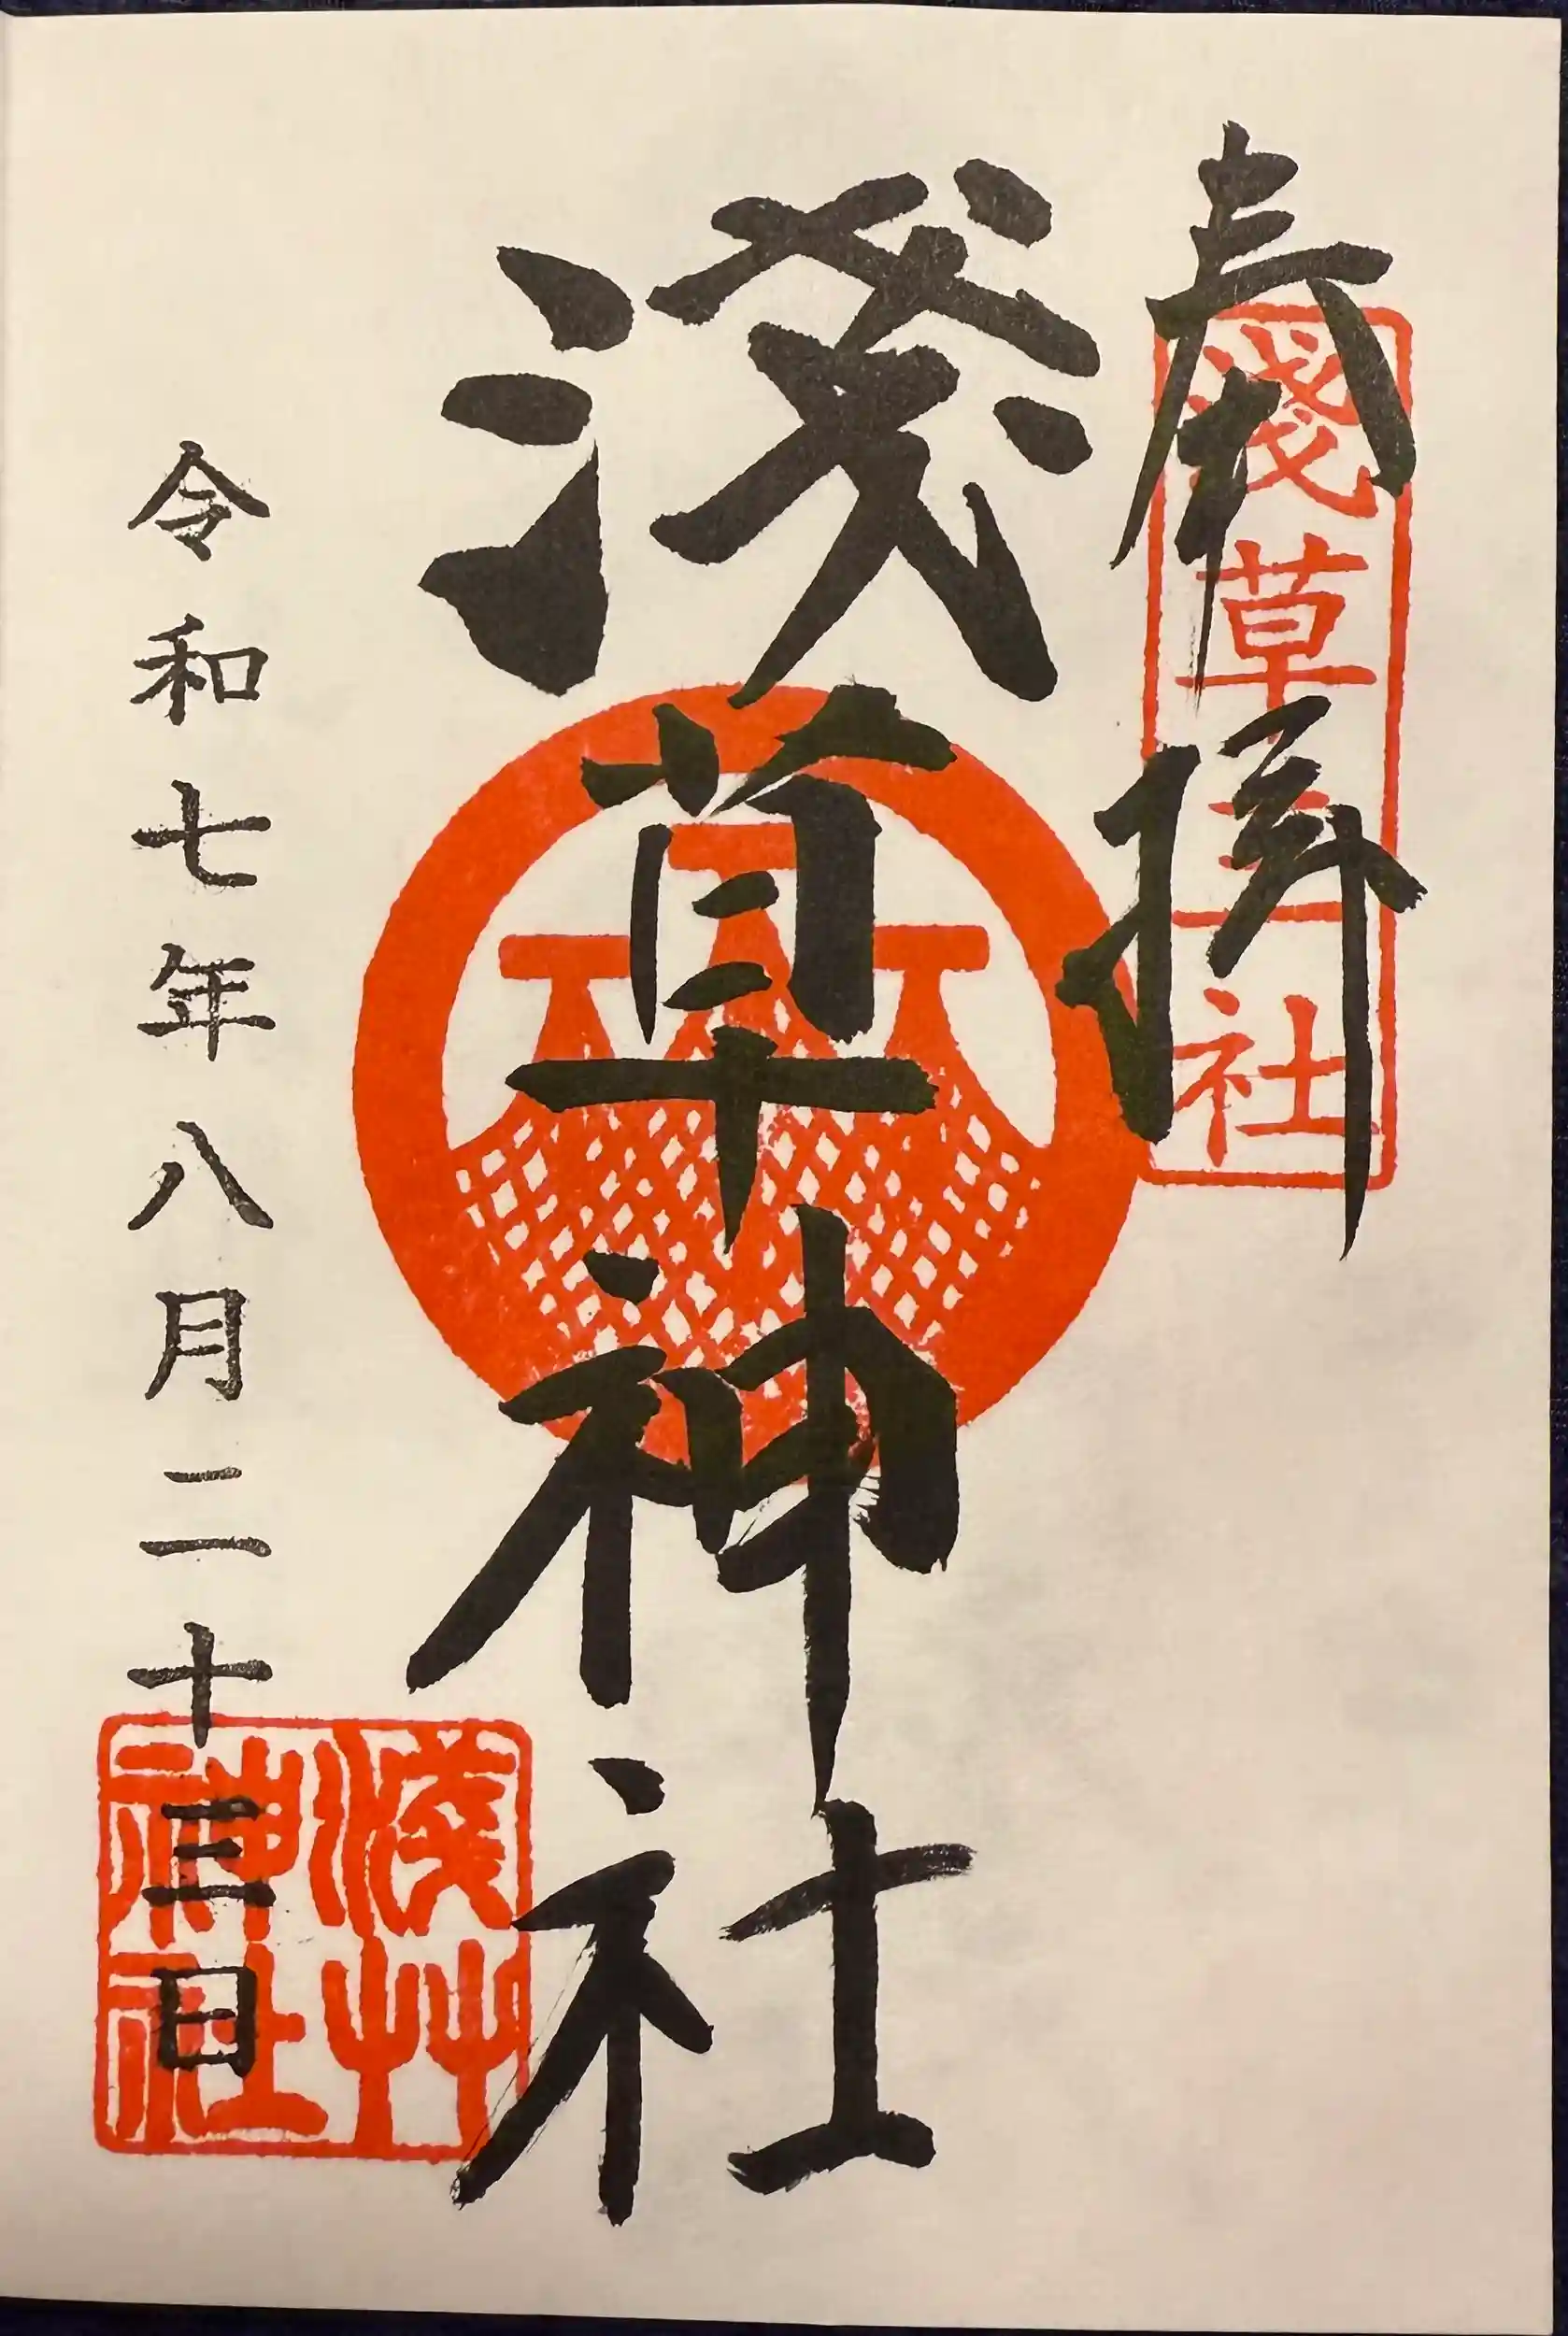 奉拝
淺草三社
淺草神社
令和七年八月二十三日
淺艸神社